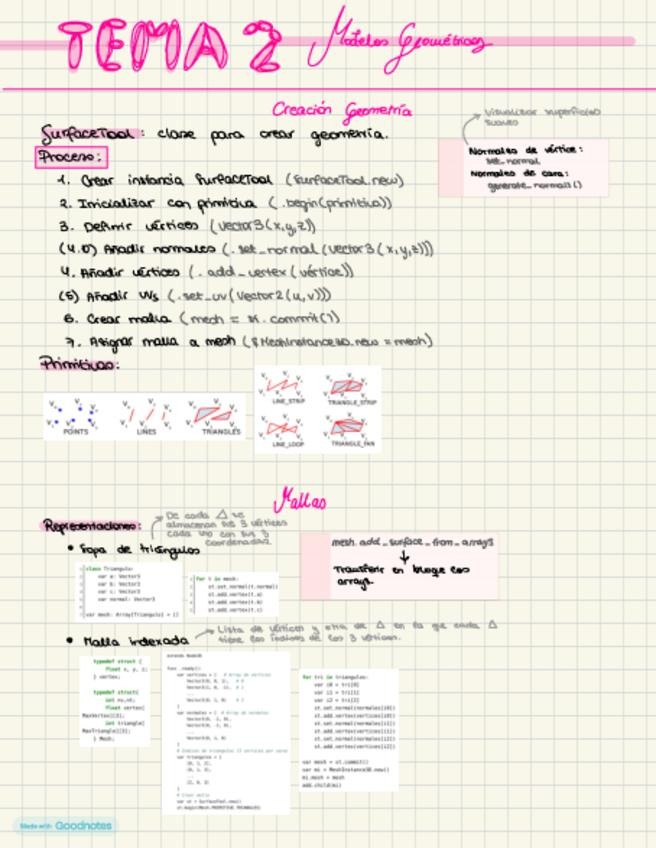 TEMA 2 Modelos Geométricos
Creación Geometría
SurfaceTool: clase para crear geometría.
Visualizar superficies
suaves
Normales de vértice:
set_normal
Normales de cara:
generate_normals()
Proceso:
1. Crear instancia SurfaceTool (SurfaceTool.new)
2. Inicializar con primitiva (.begin(primitiva))
3. Definir vértices (Vector3(x,y,z))
(4.0) Añadir normales (.set_normal(Vector3(x,y,z)))
4. Añadir vértices (.add_vertex(vértice))
(5) Añadir UVs (.set_uv(Vector2(u,v)))
6. Crear malla (mesh = st.commit())
7. Asignar malla a mesh ($MeshInstance3D.new = mesh)
Primitivas:
POINTS
LINES
TRIANGLES
LINE_STRIP
TRIANGLE_STRIP
LINE_LOOP
TRIANGLE_FAN
Mallas
Representaciones:
De cada Δ se
almacenan sus 3 vértices
cada uno con sus 3
coordenadas.
• Sopa de triángulos
class Triangulo:
var a: Vector3
var b: Vector3
var c: Vector3
var normal: Vector3
var mesh: Array[Triangulo] = []
for t in mesh:
st.set_normal(t.normal)
st.add_vertex(t.a)
st.add_vertex(t.b)
st.add_vertex(t.c)
mesh.add_surface_from_arrays
Transferir en bloque los
arrays.
• Malla indexada
Lista de vértices y otra de Δ en la que cada Δ
tiene los índices de los 3 vértices.
typedef struct {
float x, y, z;
} vertex;
typedef struct{
int nv,nt;
float vertex[
MaxVertex][3];
int triangle[
MaxTriangle][3];
} Mesh;
extends Node3D
func _ready():
var vertices = [ # Array de vertices
var normales = [ # Array de normales
var triangulos = [
# Crear malla
var st = SurfaceTool.new()
st.begin(Mesh.PRIMITIVE_TRIANGLES)
for tri in triangulos:
var i0 = tri[0]
var i1 = tri[1]
var i2 = tri[2]
st.set_normal(normales[i0])
st.add_vertex(vertices[i0])
st.set_normal(normales[i1])
st.add_vertex(vertices[i1])
st.set_normal(normales[i2])
st.add_vertex(vertices[i2])
var mesh = st.commit()
var mi = MeshInstance3D.new()
mi.mesh = mesh
add_child(mi)
Made with Goodnotes